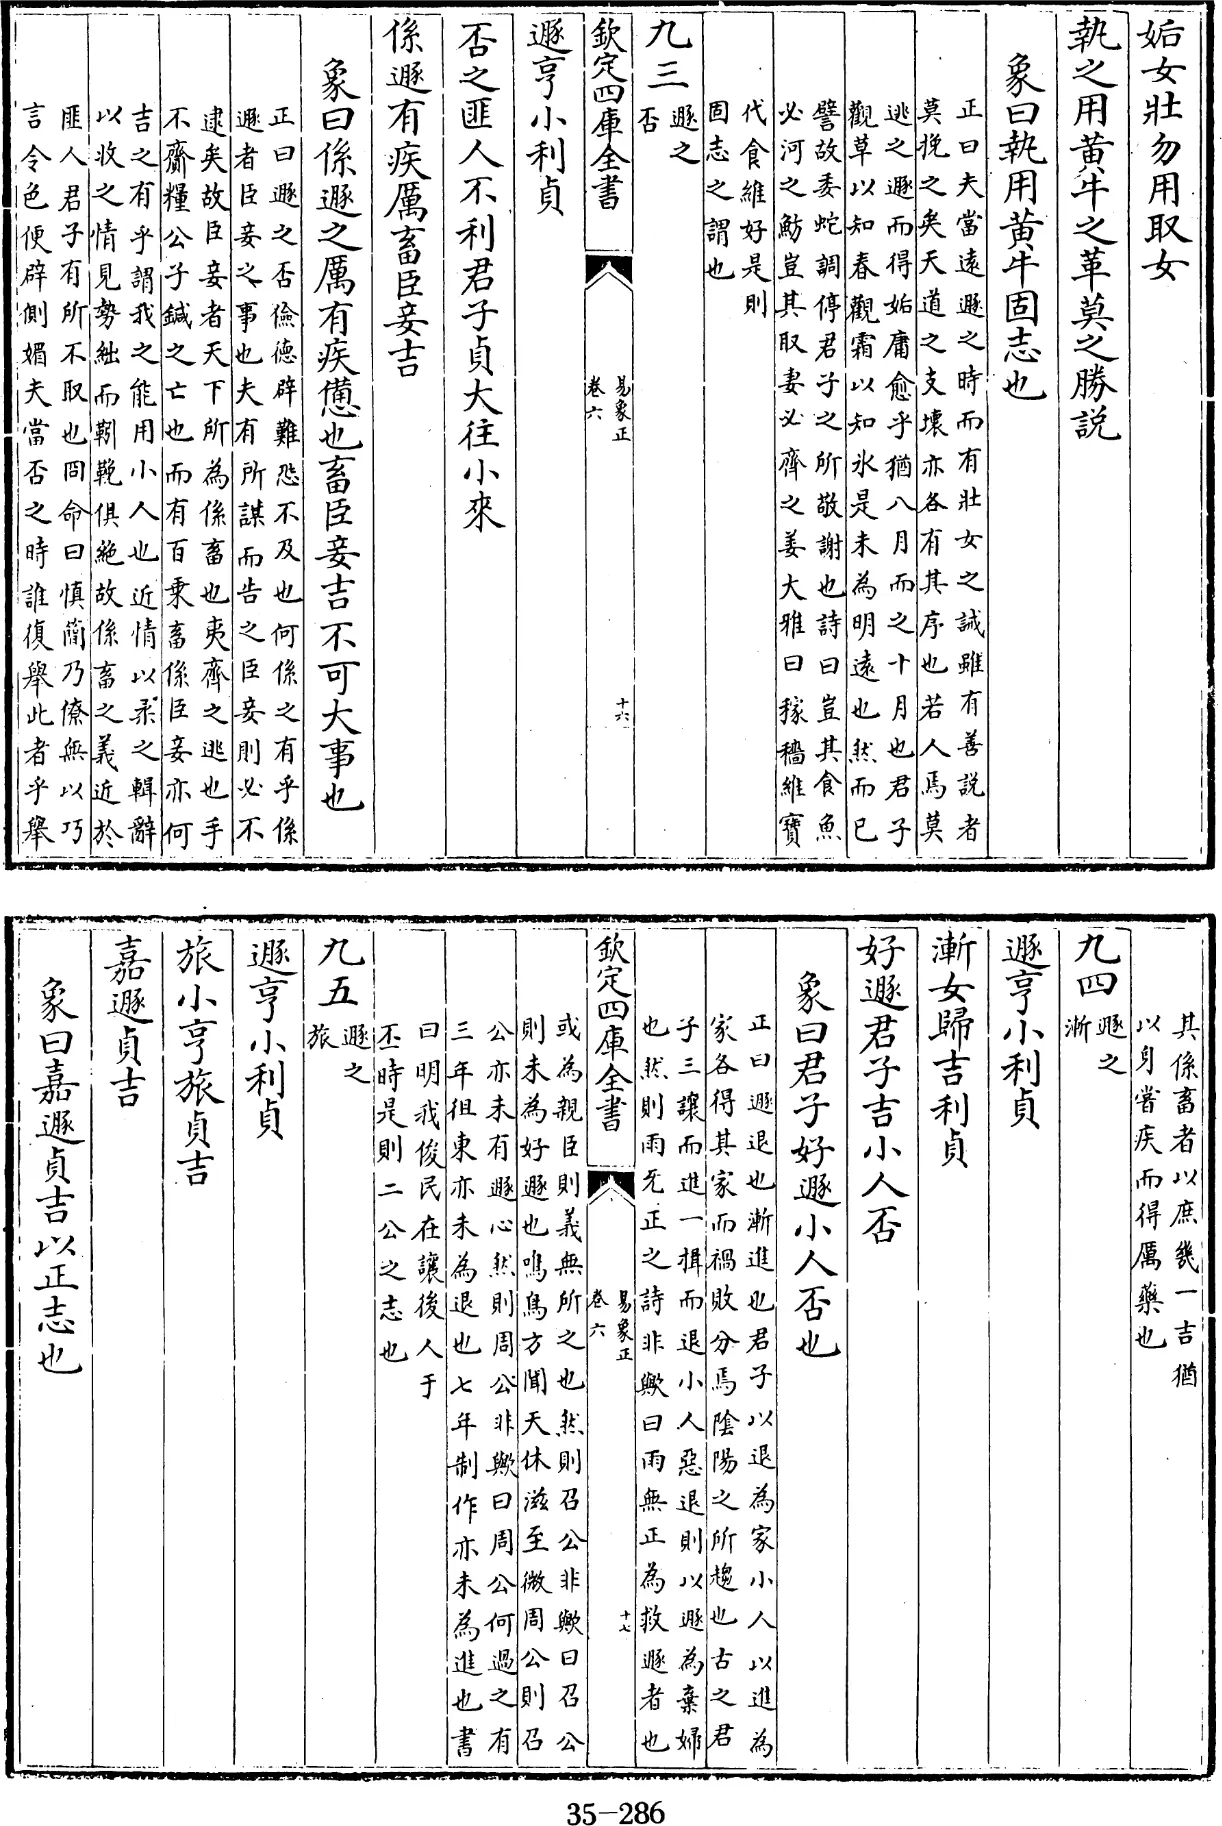 姤女壯勿用取女
執之用黄牛之革莫之勝説
象曰執用黄牛固志也
正曰夫當遠遯之時而有壯女之誡雖有善説者
莫挽之矣天道之支壞亦各有其序也若人焉莫
逃之遯而得姤庸愈乎猶八月而之十月也君子
觀草以知春觀霜以知氷是未為明遠也然而已
譬故委蛇調停君子之所敬謝也詩曰豈其食魚
必河之魴豈其取妻必齊之姜大雅曰稼穡維寶
代食維好是則
固志之謂也
九三
遯之
否
欽定四庫全書
易象正
卷六
十六
遯亨小利貞
否之匪人不利君子貞大往小來
係遯有疾厲畜臣妾吉
象曰係遯之厲有疾憊也畜臣妾吉不可大事也
正曰遯之否儉德辟難恐不及也何係之有乎係
遯者臣妾之事也夫有所謀而告之臣妾則必不
逮矣故臣妾者天下所為係畜也夷齊之逃也手
不齎糧公子鍼之亡也而有百乗畜係臣妾亦何
吉之有乎謂我之能用小人也近情以柔之輯辭
以收之情見勢絀而靷鞔俱絶故係畜之義近於
匪人君子有所不取也冏命曰慎簡乃僚無以巧
言令色便辟側媚夫當否之時誰復舉此者乎舉
其係畜者以庶幾一吉猶
以身嘗疾而得厲藥也
九四
遯之
漸
遯亨小利貞
漸女歸吉利貞
好遯君子吉小人否
象曰君子好遯小人否也
正曰遯退也漸進也君子以退為家小人以進為
家各得其家而禍敗分焉陰陽之所趨也古之君
子三讓而進一揖而退小人惡退則以遯為棄婦
也然則雨无正之詩非歟曰雨無正為救遯者也
欽定四庫全書
易象正
卷六
十七
或為親臣則義無所之也然則召公非歟曰召公
則未為好遯也鳴鳥方聞天休滋至微周公則召
公亦未有遯心然則周公非歟曰周公何過之有
三年徂東亦未為退也七年制作亦未為進也書
曰明我俊民在讓後人于
丕時是則二公之志也
九五
遯之
旅
遯亨小利貞
旅小亨旅貞吉
嘉遯貞吉
象曰嘉遯貞吉以正志也
35-286